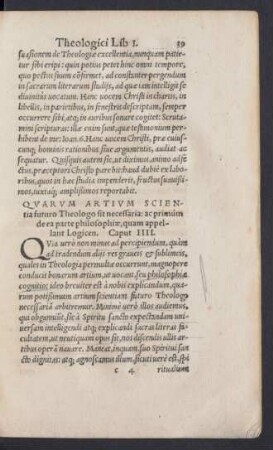 Theologici Lib I. 39
suasionem de Theologiæ excellentia, nunquam patietur
sibi eripi: quin potius petet hinc omni tempore,
quo pectus suum cõfirmet, ad constanter pergendum
in sacrarum literarum studijs, ad quæ iam intelligit se
diuinitùs uocatum. Hanc uocem Christi in chartis, in
libellis, in parietibus, in fenestris descriptam, semper
occurrere sibi, atq; in auribus sonare cogitet: Scrutamini
scripturas: illæ enim sunt, quæ testimonium perhibent
de me: Ioan. 6. Hanc uocem Christi, præ cuiuscunq;
hominis rationibus siue argumentis, audiat ac
sequatur. Quisquis autem sic, ut diximus, animo affectus,
præceptori Christo parebit, haud dubiè ex laboribus,
quos in hæc studia impenderit, fructus suauissimos,
iuxtaq; amplissimos reportabit.
QVARVM ARTIVM SCIEN-
tia futuro Theologo sit necessaria: ac primùm
de ea parte philosophiæ, quam appel-
lant Logicen. Caput IIII.
Qvia uerò non minus ad percipiendum, quàm
ad tradendum alijs res graues & sublimeis,
quales in Theologia permultæ occurrunt, magnopere
conducit bonarum artium, ut uocant, seu philosophiæ
cognitio: ideo breuiter est à nobis explicandum, quarum
potissimùm artium scientiam futuro Theologo
necessariã arbitremur. Minimè uerò illos audiemus,
qui obganniunt, sic à Spiritu sancto expectandum uniuersam
intelligendi atq; explicandi sacras literas facultatem,
ut neutiquam opus sit, nos discendis illis artibus
operã nauare. Maneat, inquam, suo Spiritui sancto
dignitas: atq; agnoscamus illum, sicuti uerè est, spi
c 4 ritualium